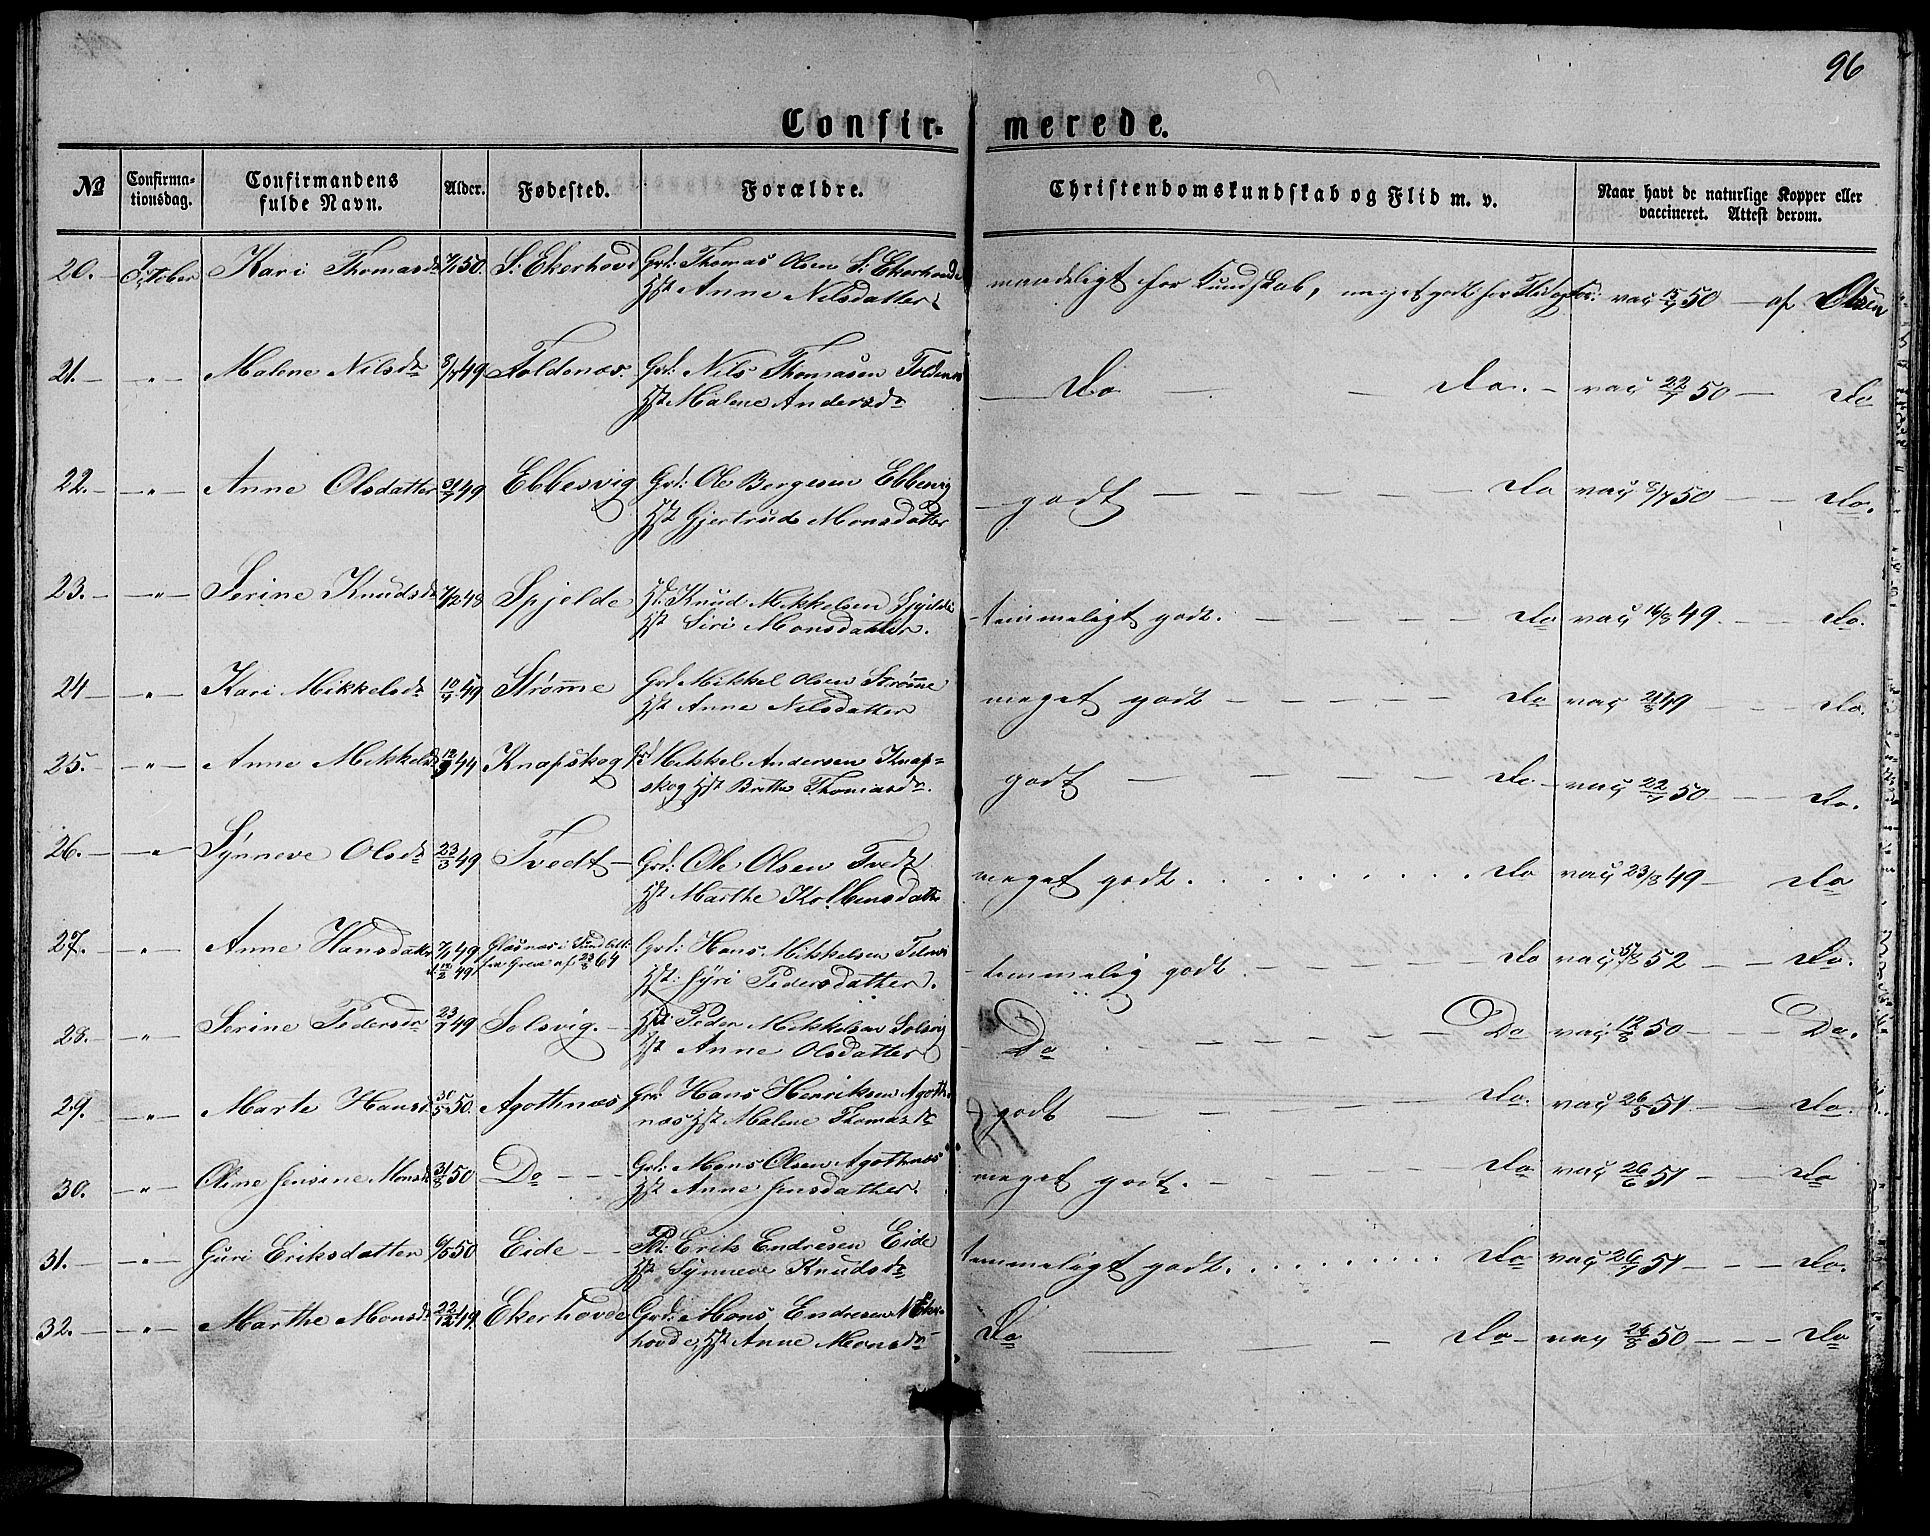 96
Confir- merede.
No
Confirma-
tionsdag.
Confirmandens
fulde Navn.
Alder.
Fødested.
Forældre.
Christendomskundskab og Flid m. v.
Naar havt de naturlige Kopper eller
vaccineret. Attest derom.
20. — October Kari Thomasd. S: Ekerhovd Grd: Thomas Olsen S: Ekerhovde
Hst Anne Nilsdatter
maadeligt for Kundskab, meget godt for Flid vac 50 — af Olsen
21. — " — Malene Nilsdr 49 Foldenæs. Grd: Nils Thomasen Foldenæs
Hst Malene Andersdr
— Do — — Do. — vac 22/7 50 — Do
22. — " — Anne Olsdatter 49 Ebbesvig Grd: Ole Bergesen Ebbesvig
Hst Gjertrud Monsdatter
— godt — — — — Do vac 50 — — Do.
23. — " — Serine Knudsdr 48 Spjelde Knud Mikkelsen Spjelde
Hst Siri Monsdatter.
temmeligt godt. — — — — Do vac 16/8 49. — — Do.
24 — " — Kari Mikkelsdr 49 Strømme Grd Mikkel Olsen Strømme
Hst Anne Nilsdatter
meget godt — — — — Do vac 49 — — Do.
25. — " — Anne Mikkelsd Knapskog Grd Mikkel Andersen Knap=
skog Hst Brithe Thomasdr.
godt — — — — Do. — vac 22/7 50 — — Do.
26. — " — Synneve Olsdr 23/3 49 Tvedt — Grd: Ole Olsen Tvedt
Hst Marthe Kolbensdatter
meget godt. . . . . . . . . Do vac 23/8 49 — Do
27. — " Anne Hansdatter 49 Grd: Hans Mikkelsen
Hst: Syri Pedersdatter.
temmelig godt. — — — — Do vac 52 — — Do.
28. — " Serine Pedersdr 23/7 49 Solsvig. — Peder Mikkelsen Solsvig
Hst Anne Olsdatter
— Do — — — — Do vac 12/8 50 — — Do.
29. — " Marte Hansd 31/5 50. Agothnæs Grd: Hans Henriksen Agoth-
næs Hst Malene Thomasdr
godt — — — — Do. vac 26/5 51. — — Do.
30. — " — Oline Jensine Monsdr 31/8 50 Do — — Grd: Mons Olsen Agothnæs
Hst Anne Jensdatter.
meget godt. — — — — Do vac 26/6 51 — — Do
31. — " — Guri Eriksdatter 50 Eide — Erik Endresen Eide
Hst Synneve Knudsdr
temmeligt godt. . . . . . . . . Do vac 26/7 51 — — — Do.
32. — " — Marthe Monsdr 22/12 49. Ekerhovde Grd: Mons Endresen N Eker-
hovde, Hst Anne Monsdr
Do — — — Do — vac 26/8 50 — — — Do